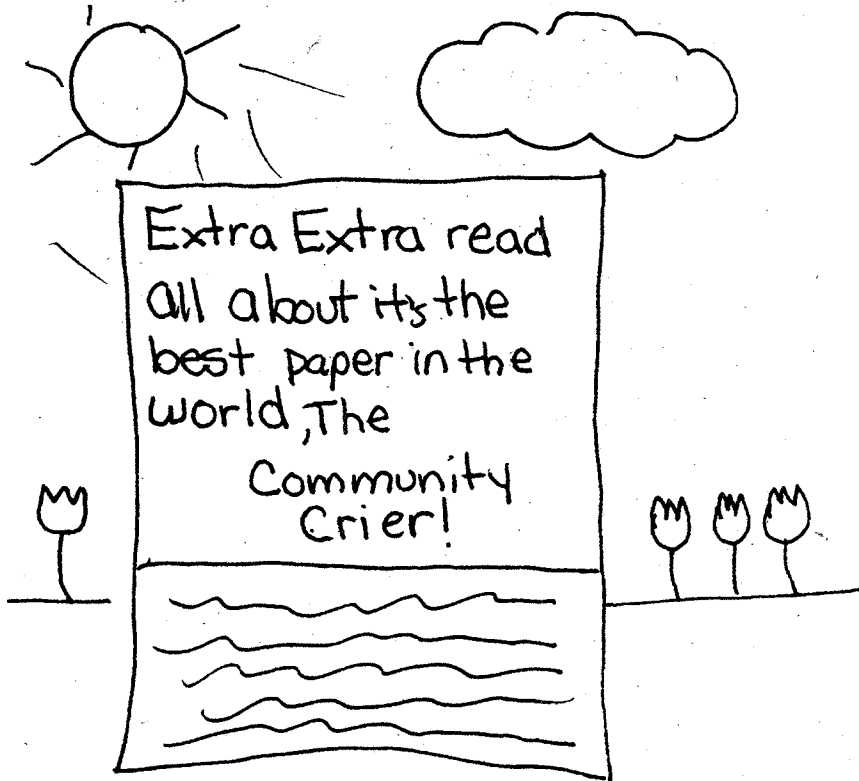 Extra Extra read
all about it's the
best paper in the
world, The
Community
Crier!